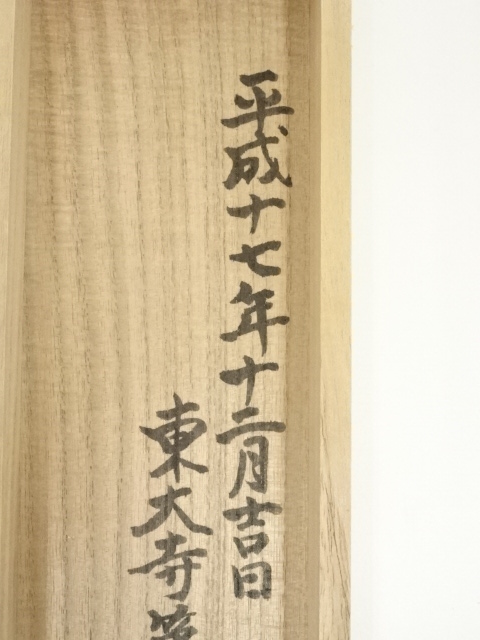 平成十七年十二月吉日
東大寺